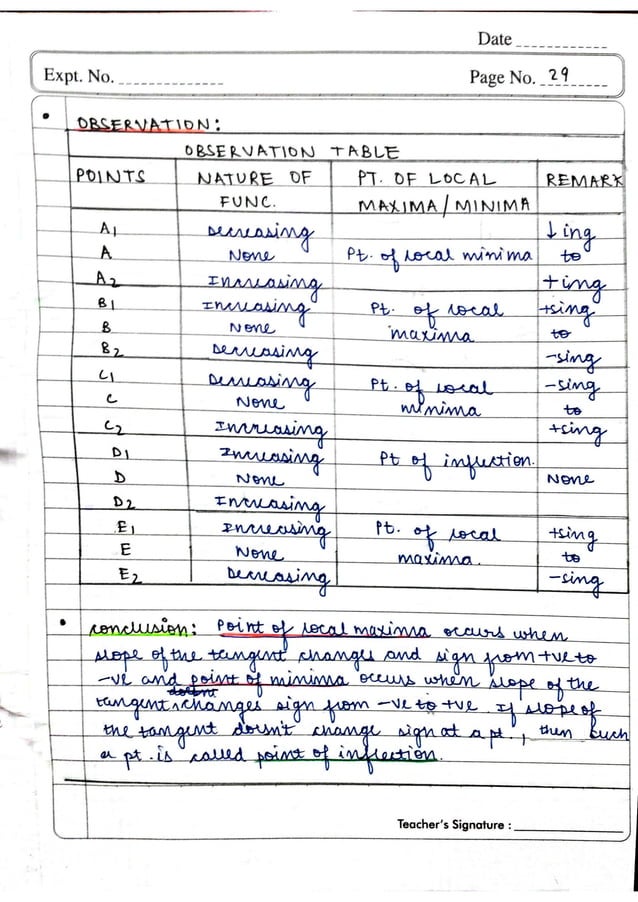 Date
Expt. No.
Page No. 29
• OBSERVATION:
OBSERVATION TABLE
POINTS NATURE OF FUNC. PT. OF LOCAL MAXIMA/MINIMA REMARK
A1 Decreasing ↓ing
A None Pt. of local minima to
A2 Increasing +ing
B1 Increasing Pt. of local +sing
B None maxima to
B2 Decreasing -sing
C1 Decreasing Pt. of local -sing
C None minima to
C2 Increasing +sing
D1 Increasing Pt of inflection.
D None None
D2 Increasing
E1 Increasing Pt. of local +sing
E None maxima. to
E2 Decreasing -sing
• conclusion: Point of local maxima occurs when
slope of the tangent changes and sign from +ve to
-ve and point of minima occurs when slope of the
tangent changes sign from -ve to +ve. If slope of
the tangent doesn't change sign at a pt., then such
a pt. is called point of inflection.
Teacher's Signature :